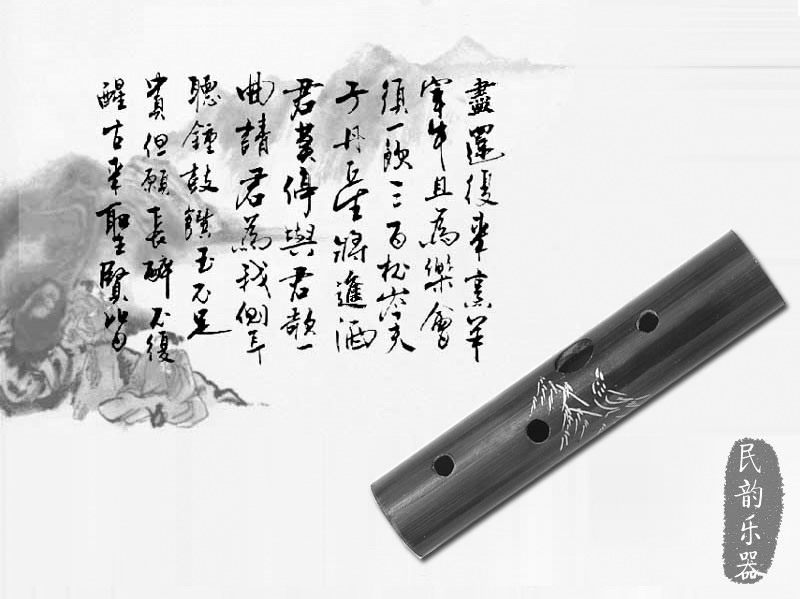 盡還復來烹羊
宰牛且為樂會
須一飲三百杯岑夫
子丹丘生將進酒
君莫停與君歌一
曲請君為我側耳
聽鐘鼓饌玉不足
貴但願長醉不復
醒古來聖賢皆
民韵乐器